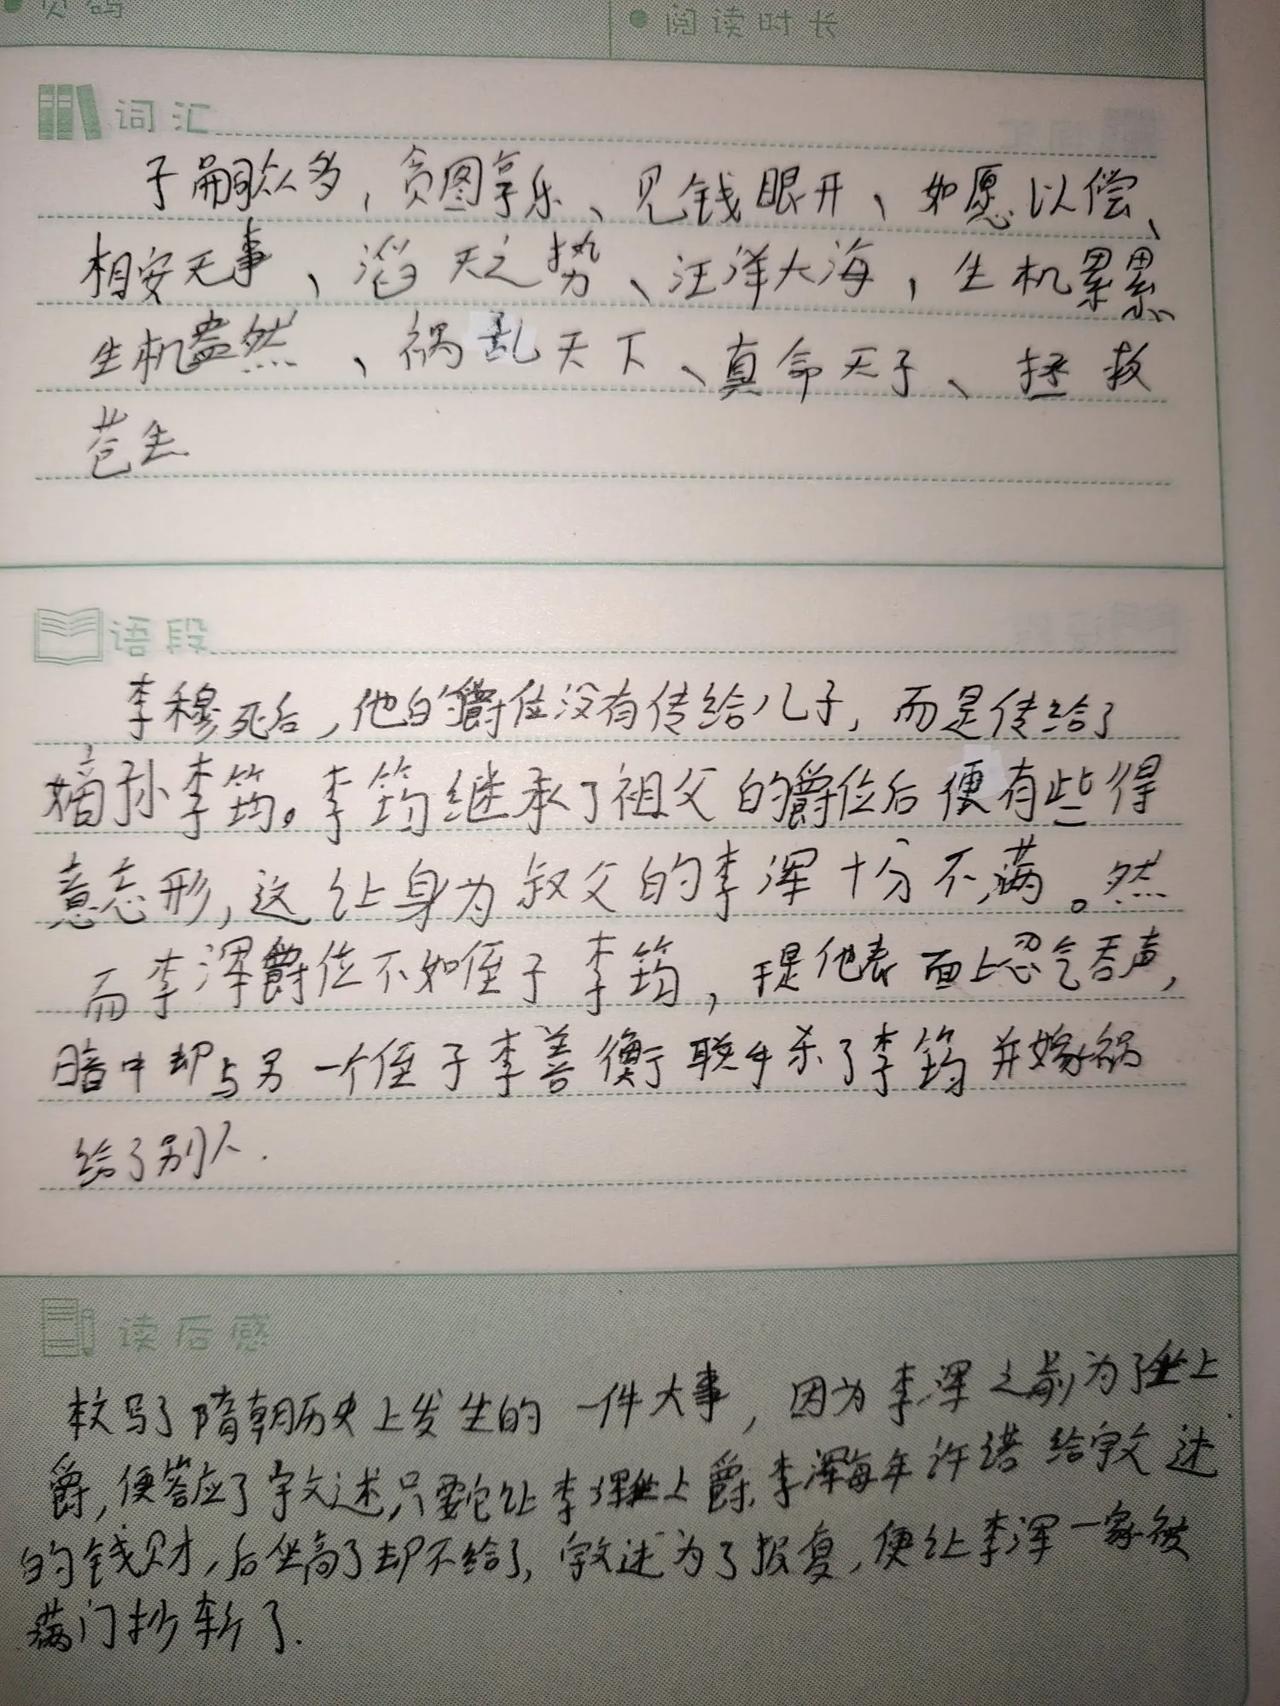 页码
阅读时长
词汇
子嗣众多，贪图享乐、见钱眼开、如愿以偿、
相安无事、滔天之势、汪洋大海，生机累累
生机盎然、祸乱天下、真命天子、拯救
苍生
语段
李穆死后，他的爵位没有传给儿子，而是传给了
嫡孙李筠。李筠继承了祖父的爵位后便有些得
意忘形，这让身为叔父的李浑十分不满。然
而李浑爵位不如侄子李筠，于是他表面上忍气吞声，
暗中却与另一个侄子李善衡联手杀了李筠并嫁祸
给了别人.
读后感
本文写了隋朝历史上发生的一件大事，因为李浑之前为了坐上
爵，便答应了宇文述，只要它让李浑坐上爵，李浑每年许诺给宇文述
的钱财，后坐高了却不给了，宇文述为了报复，便让李浑一家被
满门抄斩了.